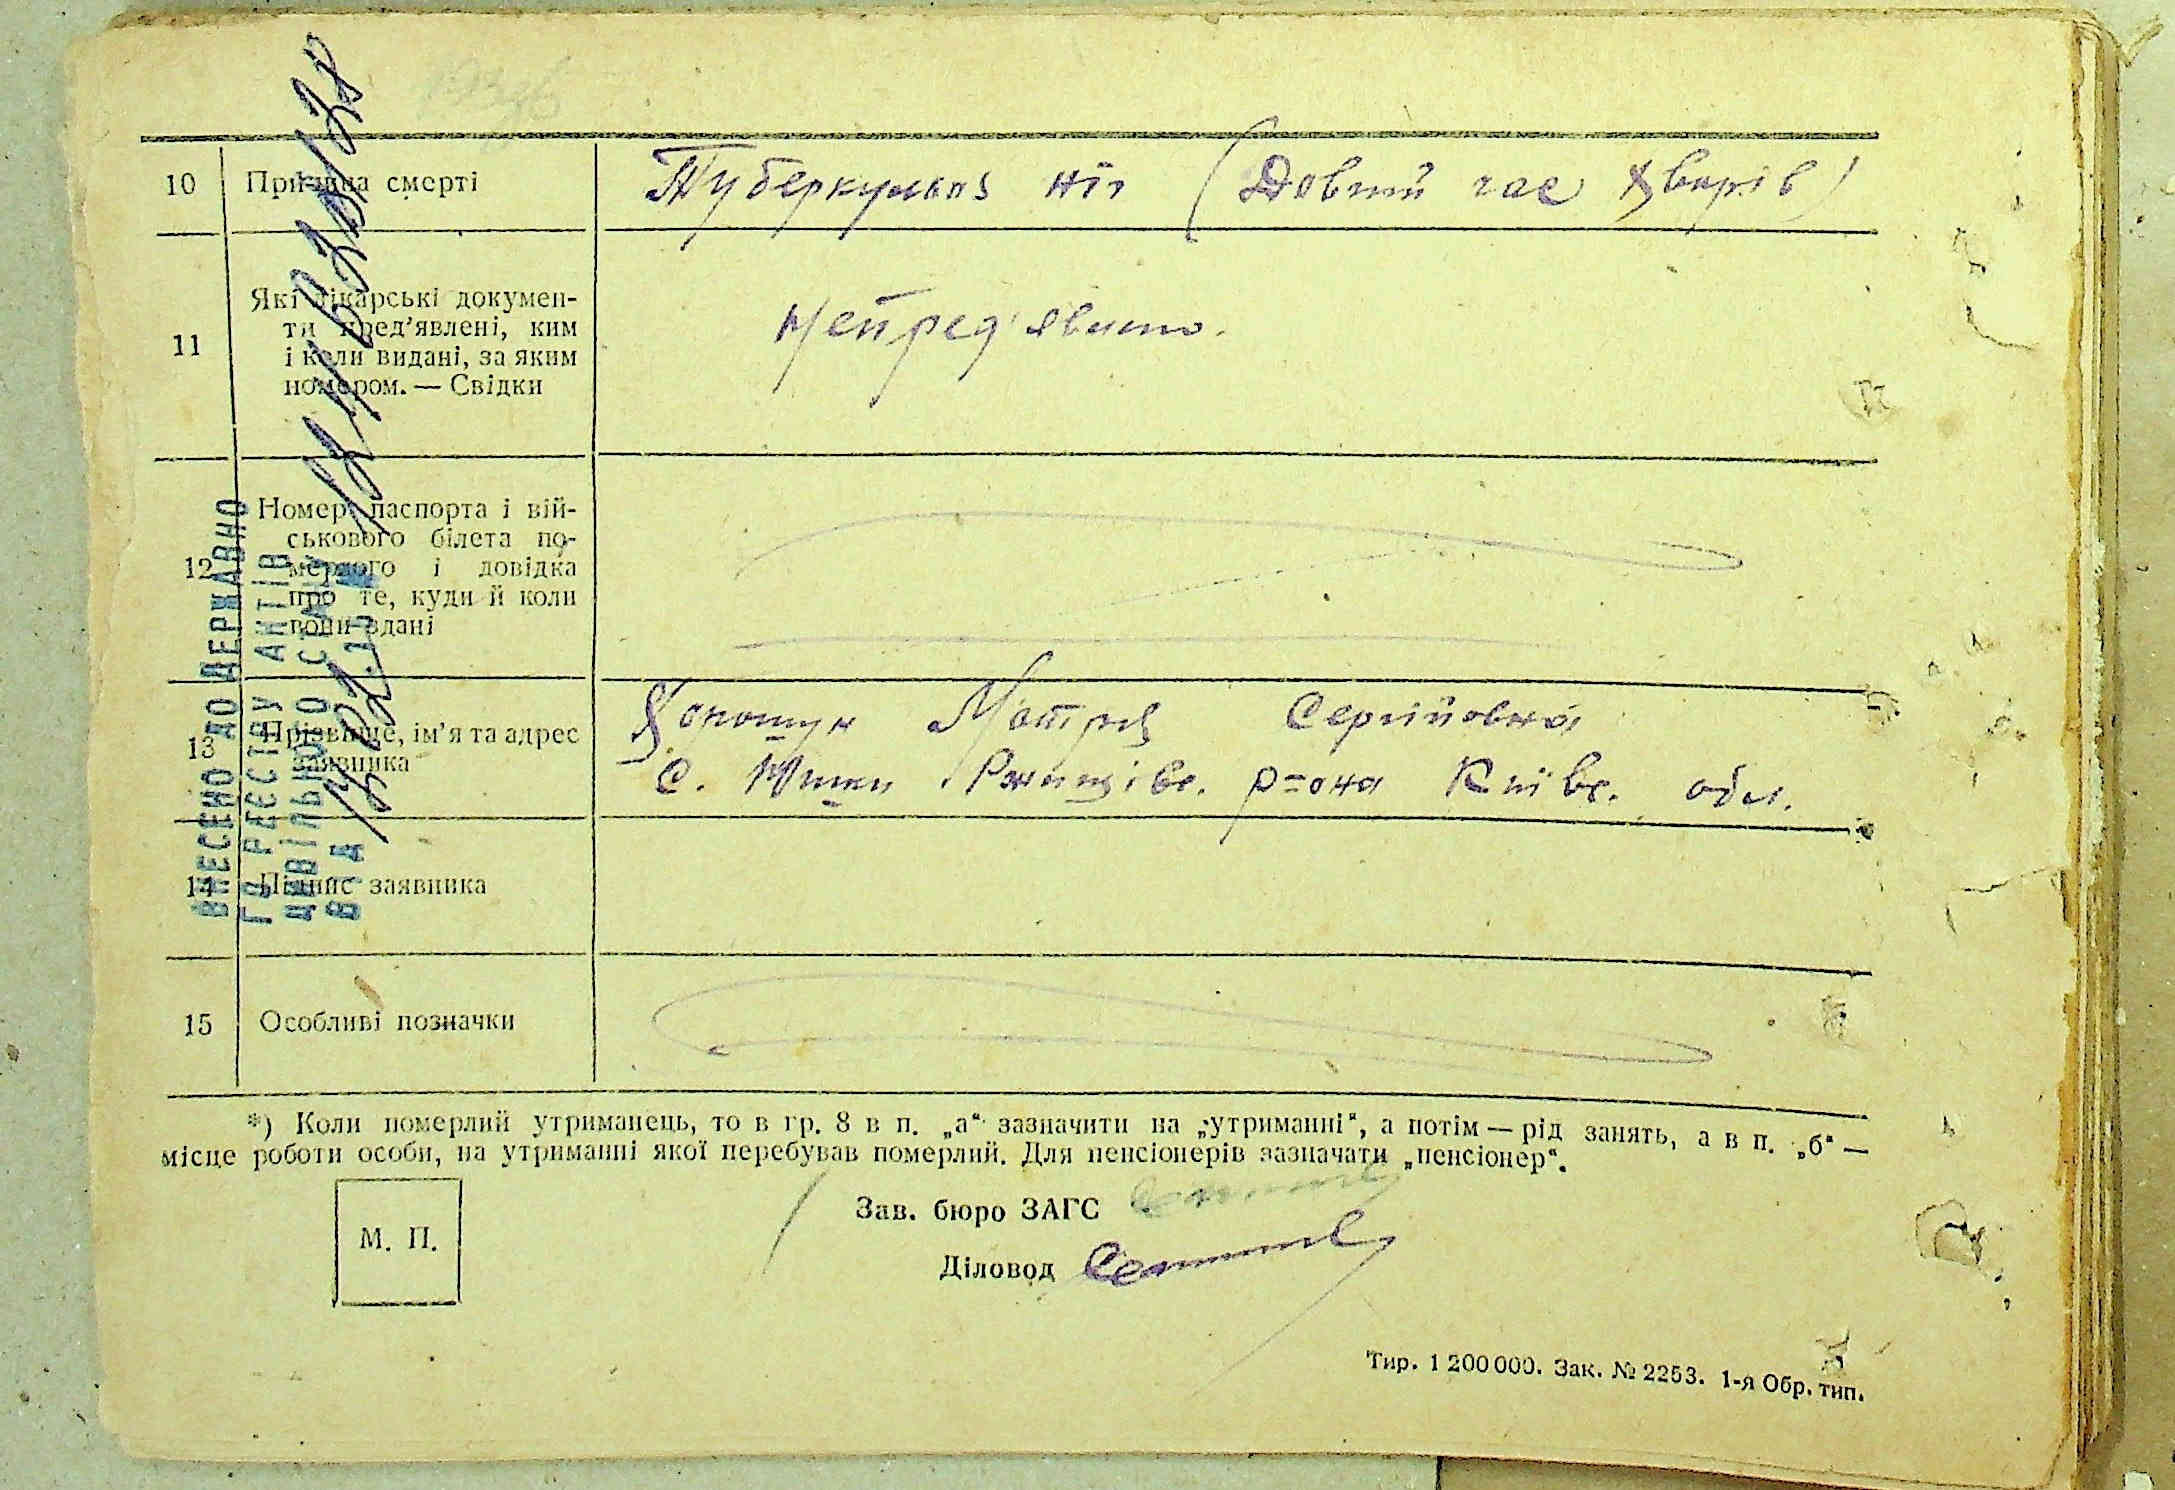 10 Причина смерті Туберкульоз ніг (Довгий час хворів)
11 Які лікарські докумен-
ти пред’явлені, ким
і коли видані, за яким
номером. — Свідки
Непред'явлено.
12 Номер паспорта і вій-
ськового білета по-
мерлого і довідка
про те, куди й коли
вони здані
13 Прізвище, ім’я та адрес
заявника
Мотря Сергійовна
С. Юшки Ржищівс. р=она Київс. обл.
14 Підпис заявника
15 Особливі позначки
*) Коли померлий утриманець, то в гр. 8 в п. „а“ зазначити на „утриманні“, а потім — рід занять, а в п. „б“ —
місце роботи особи, на утриманні якої перебував померлий. Для пенсіонерів зазначати „пенсіонер“.
М. П.
Зав. бюро ЗАГС
Діловод
Тир. 1 200 000. Зак. № 2253. 1-я Обр. тип.
ВНЕСЕНО ДО ДЕРЖАВНО
ГО РЕЄСТРУ АКТІВ
ЦИВІЛЬНОГО СТАНУ
ВІД